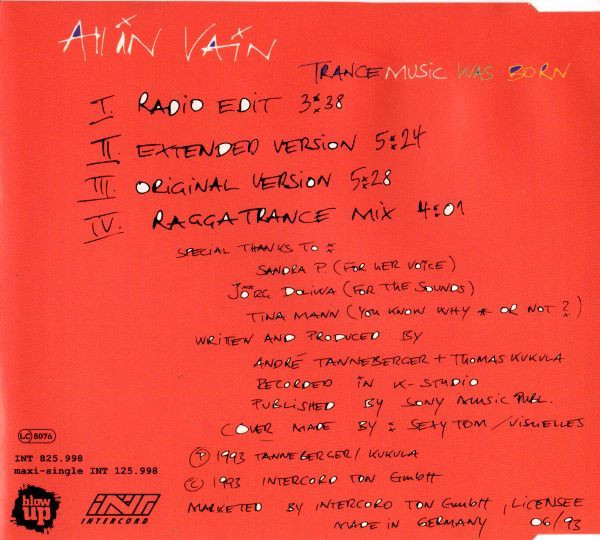 All in Vain
TRANCE MUSIC WAS BORN
I. RADIO EDIT 3:38
II. EXTENDED VERSION 5:24
III. ORIGINAL VERSION 5:28
IV. RAGGATRANCE MIX 4:01
SPECIAL THANKS TO :
SANDRA P. (FOR HER VOICE)
JÖRG DOLIWA (FOR THE SOUNDS)
TINA MANN (YOU KNOW WHY * OR NOT ?)
WRITTEN AND PRODUCED BY
ANDRÉ TANNEBERGER + THOMAS KUKULA
RECORDED IN K-STUDIO
PUBLISHED BY SONY MUSIC PUBL.
COVER MADE BY : SEXY TOM / VISUELLES
LC 8076
INT 825.998
maxi-single INT 125.998
Ⓟ 1993 TANNEBERGER / KUKULA
© 1993 INTERCORD TON GmbH
MARKETED BY INTERCORD TON GmbH, LICENSEE
MADE IN GERMANY 06/93
blow up
INT
INTERCORD